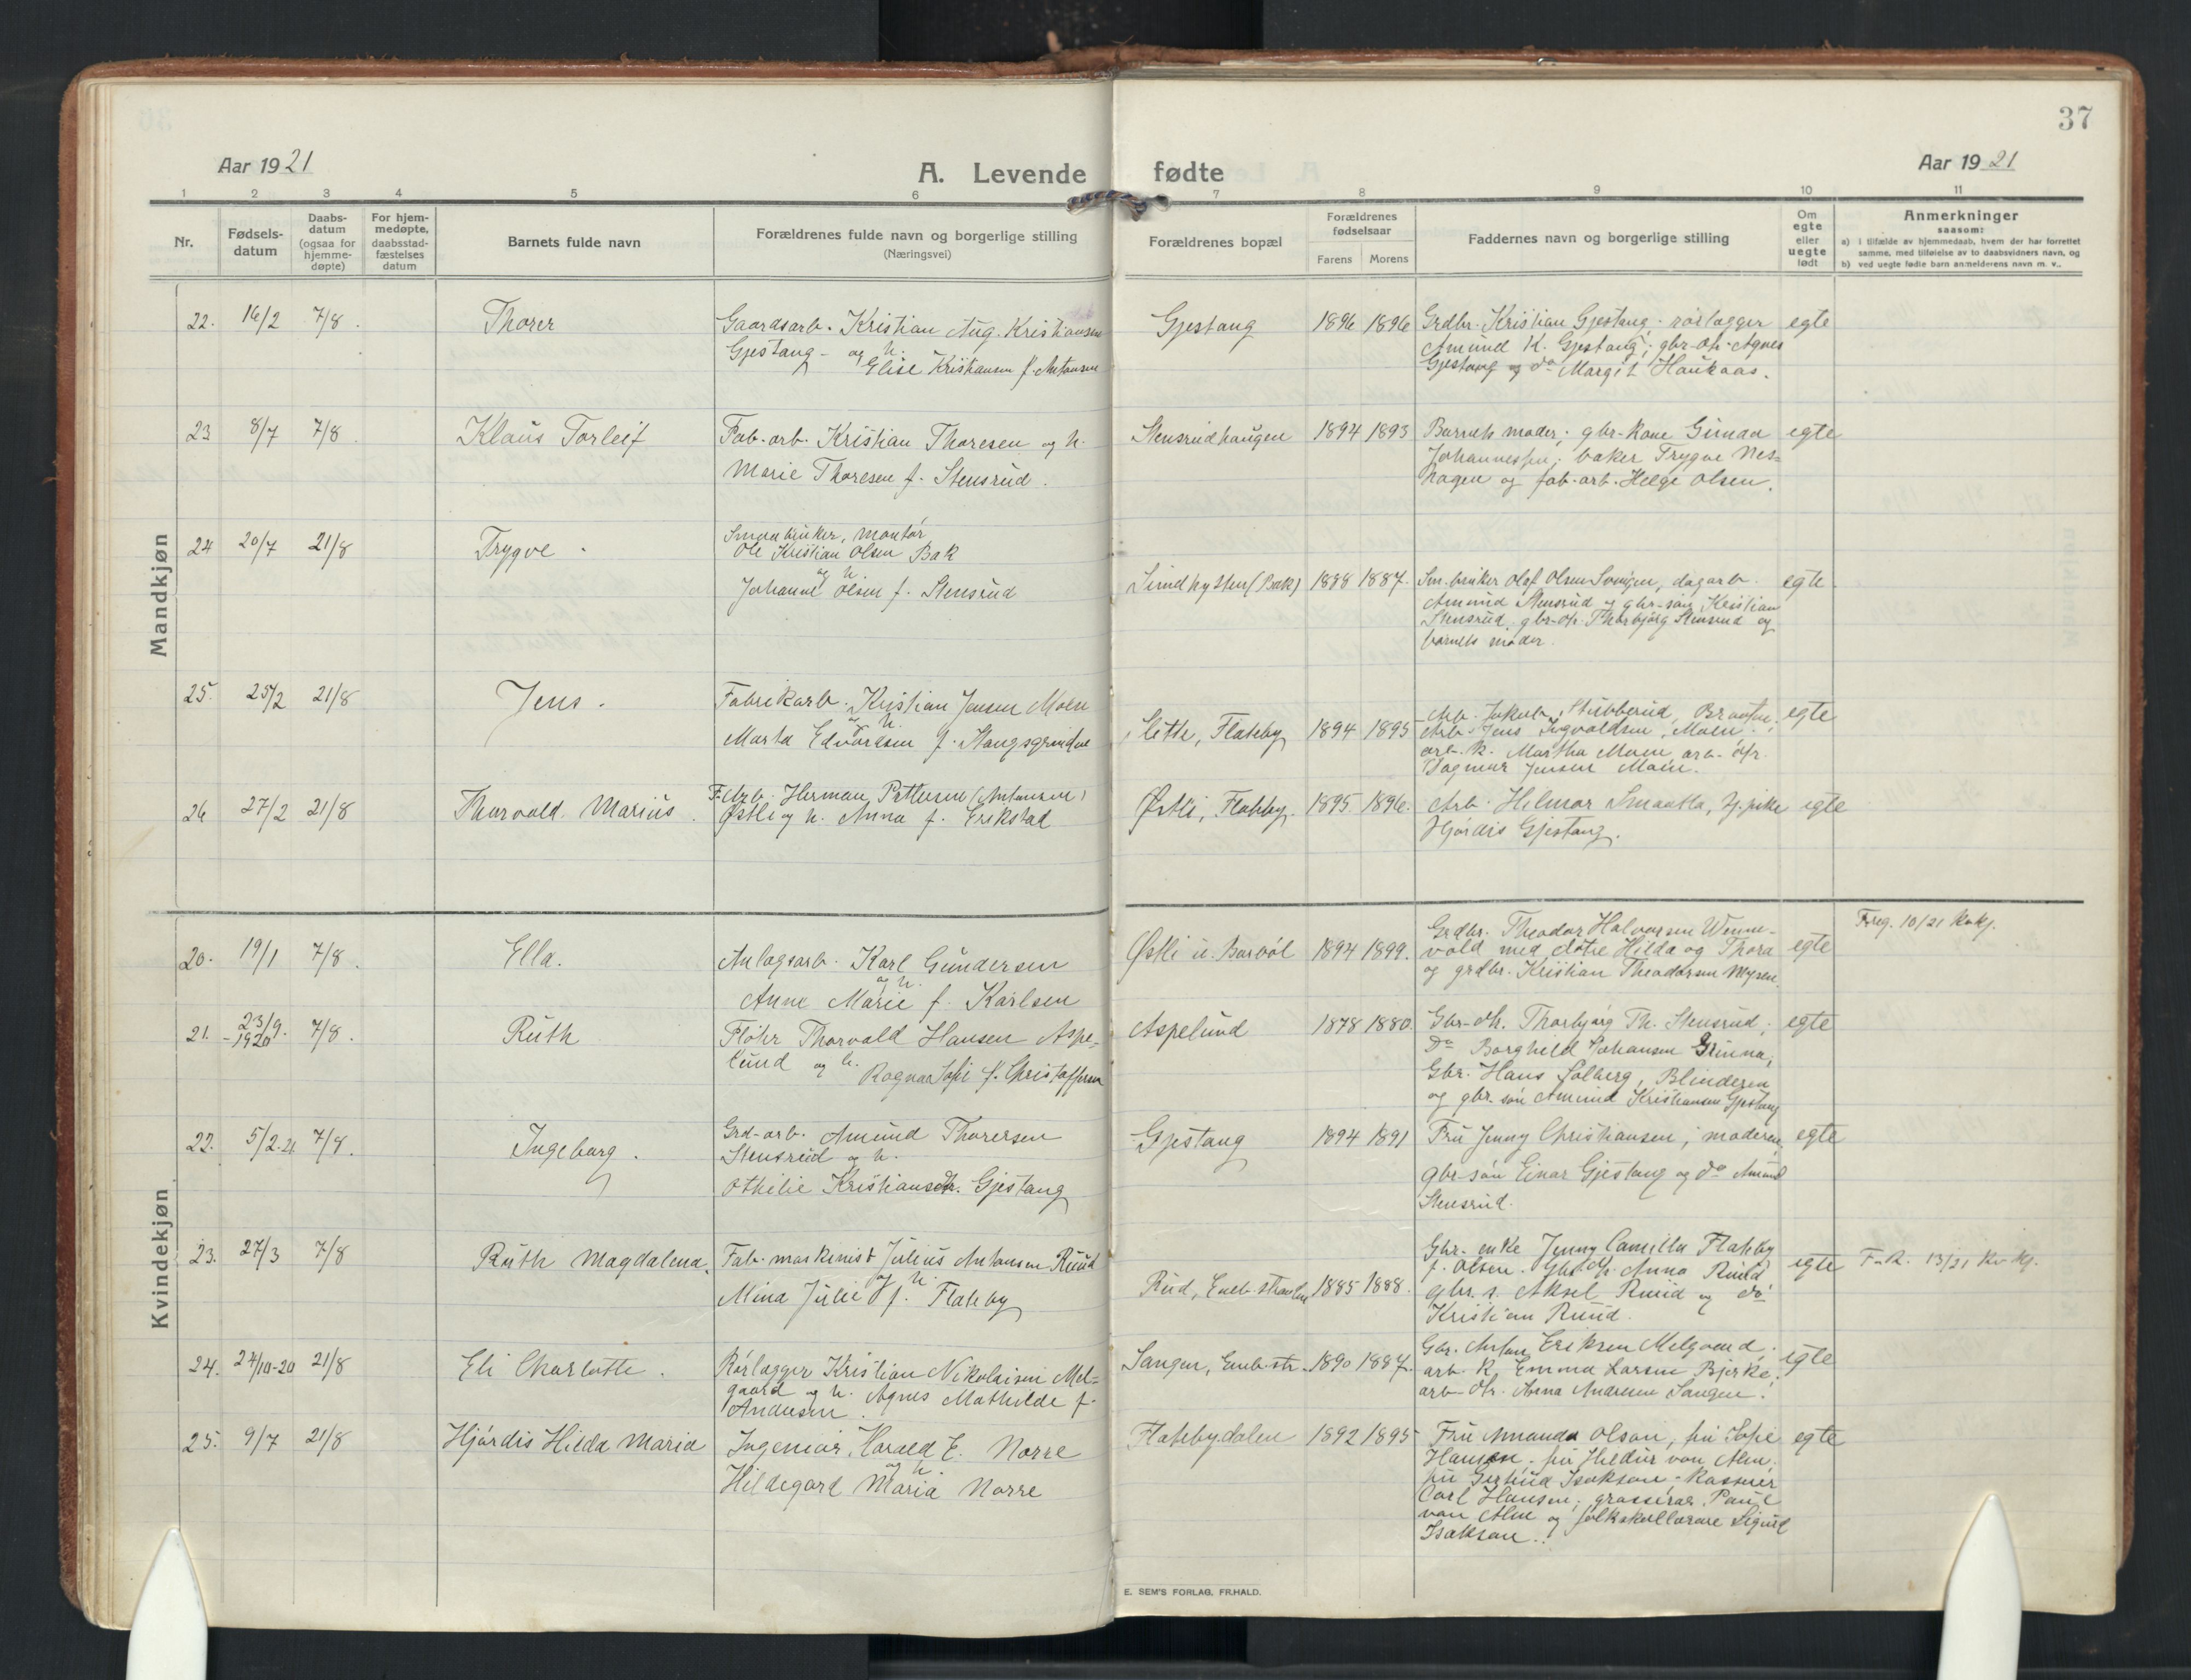 37
Aar 1921
A. Levende fødte
Aar 1921
1 2 3 4 5 6 7 8 9 10 11
Nr.
Fødsels-
datum
Daabs-
datum
(ogsaa for
hjemme-
døpte)
For hjem-
medøpte,
daabsstad-
fæstelses
datum
Barnets fulde navn
Forældrenes fulde navn og borgerlige stilling
(Næringsvei)
Forældrenes bopæl
Forældrenes
fødselsaar
Farens Morens
Faddernes navn og borgerlige stilling
Om
egte
eller
uegte
født
Anmerkninger
saasom:
a) i tilfælde av hjemmedaab, hvem der har forrettet
samme, med tilføielse av to daabsvidners navn, og
b) ved uegte fødte barn anmelderens navn m. v..
Mandkjøn
22. 16/2 7/8. Thorer
Gaardsarb. Kristian Aug. Kristiansen
Gjestang - og h.
Elise Kristiansen f. Antonsen
Gjestang 1896 1896
Grdbr. Kristian Gjestang; rørlægger
Amund K. Gjestang; gbr-dtr. Agnes
Gjestang og do Margit Haukaas.
egte
23 8/7 7/8. Klaus Torleif
Fab-arb. Kristian Thoresen og h.
Marie Thoresen f. Stensrud.
Stensrudhaugen 1894 1893
Barnets moder; gbr-kone Gunda
Johannessen; baker Trygve Nes=
hagen og fab-arb. Helge Olsen.
egte
24 20/7 21/8 Trygve.
Smaabruker, montør
Ole Kristian Olsen Bak
og h.
Johanne Olsen f. Stensrud
(Bak) 1888 1887.
Sm.bruker Olaf Olsen dagarb.
Amund Stensrud og gbr-søn Kristian
Stensrud, gbr-dtr. Thorbjørg Stensrud og
barnets moder.
egte.
25. 25/2 21/8 Jens.
Fabrikarb. Kristian Jensen Moen
og h.
Marta Edvardsen f. Stangsgrinden
Slette, Flateby 1894 1895
Arb. Jakob Stubberud, Braaten;
Arb. Jens Ingvaldsen, Moen;
arb.k. Martha Moen, arb-dtr.
Dagmar Jensen Moen.
egte
26 27/2 21/8 Thorvald Marius.
F.Arb. Herman Pettersen (Antonsen)
Østli og h. Anna f. Erikstad
Østli, Flateby. 1895 1896.
Arb. Hilmar Smaatta, tj.pike
Hjørdis Gjestang.
egte
Kvindekjøn
20. 19/1 7/8. Ella.
Anlægsarb. Karl Gundersen
og h.
Anne Marie f. Karlsen
Østli u. Barbøl 1894 1899.
Grdbr. Theodor Halvorsen Wenne-
vold med døtre Hilda og Thora
og grdbr. Kristian Theodorsen Mysen.
egte
F.reg. 10/21 Kvkj.
21. 23/9. 7/8. Ruth
-1920
Fløter Thorvald Hansen Aspe=
lund og h.
Ragna Sofie f. Christoffersen
Aspelund 1878 1880.
Gbr-dtr. Thorbjørg Th. Stensrud;
Do Borghild Johansen Grinna;
Gbr. Hans Solberg, Blinderen
og gbr. søn Amund Kristiansen Gjestang
egte
22. 5/2-21 7/8. Ingeborg.
Grd-arb. Amund Thorersen
Stensrud og h.
Othilie Kristiansdtr. Gjestang
Gjestang 1894 1891
Fru Jenny Christiansen; moderen,
gbr-søn Einar Gjestang og do Amund
Stensrud.
egte
23. 27/3 7/8 Ruth Magdalena.
Fab-maskinist Julius Antonsen Ruud
og h.
Mina Julie f. Flateby
Rud, Eneb. 1885 1888.
Gbr-enke Jenny Camilla Flateby
f. Olsen. Gbr dtr. Anna Ruud
gbr.s. Aksel Ruud og do
Kristian Ruud.
egte
F.R. 13/21 Kv.kj.
24. 24/10-20 21/8 Eli Charlotte.
Rørlægger Kristian Nikolaisen Mel=
gaard og h. Agnes Mathilde f.
Andresen.
Sangen, Eneb. str. 1890 1887.
Gbr. Anton Eriksen Melgaard;
arb. k. Emma Larsen Bjerke;
arb-dtr. Anna Andresen Sangen.
egte
25. 9/7 21/8 Hjørdis Hilda Maria
Ingeniør Harald E. Norre
og h.
Hildegard Maria Norre
Flatebydalen 1892 1895
Fru Amanda Olson, fru Sofie
Hansen; fru Hildur von Alm;
fru Gertrud Isakson; Kasserer
Carl Hansen; grosserer Paul
von Alm og folkskollärare Sigurd
Isakson.
egte
E. SEM'S FORLAG, FR.HALD.